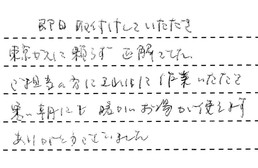 即日取付けしていただき
東京ガスに頼らず正解でした。
ご担当の方に も作業いただて
寒い朝にも暖かいお湯が使えます
ありがとうございました